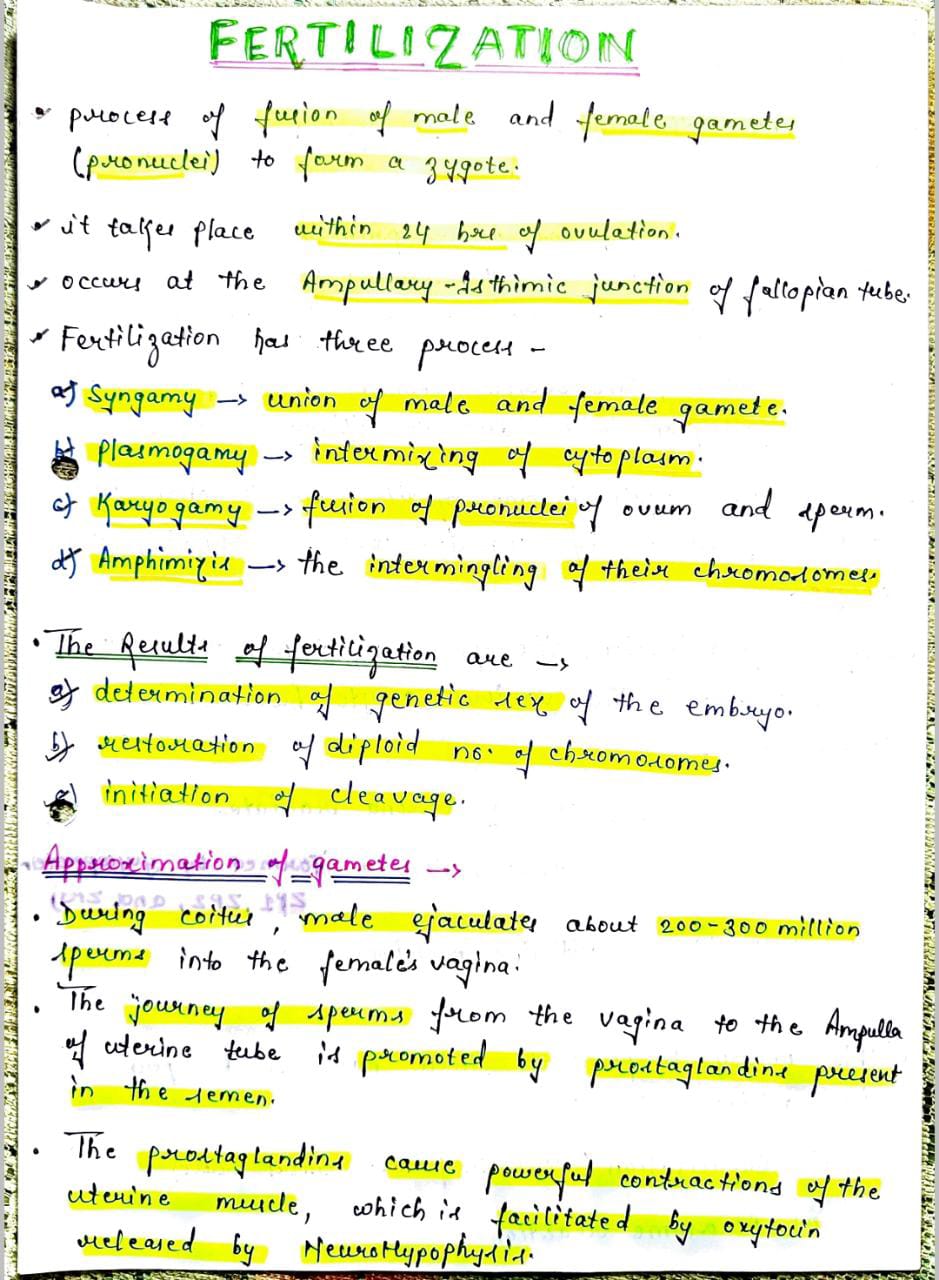 FERTILIZATION
process of fusion of male and female gametes
(pronuclei) to form a zygote.
it takes place within 24 hrs of ovulation.
occurs at the Ampullary-Isthimic junction of fallopian tube.
Fertilization has three process -
a) Syngamy → union of male and female gamete.
b) Plasmogamy → intermixing of cytoplasm.
c) Karyogamy → fusion of pronuclei of ovum and sperm.
d) Amphimixis → the intermingling of their chromosomes.
• The Results of fertilization are →
a) determination of genetic sex of the embryo.
b) restoration of diploid no. of chromosomes.
c) initiation of cleavage.
Approximation of gametes →
• During coitus, male ejaculates about 200-300 million
sperms into the female's vagina.
• The journey of sperms from the vagina to the Ampulla
of uterine tube is promoted by prostaglandins present
in the semen.
• The prostaglandins cause powerful contractions of the
uterine muscle, which is facilitated by oxytocin
released by NeuroHypophysis.